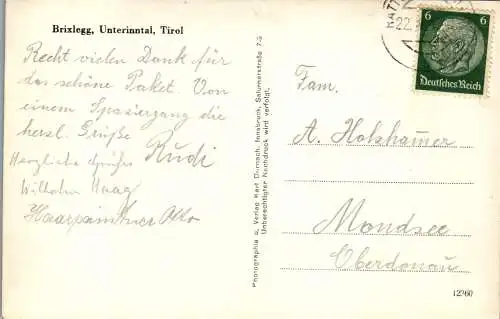 Brixlegg, Unterinntal, Tirol
Recht vielen Dank für
das schöne Paket. Von
einem Spaziergang die
herzl. Grüße
Rudi
Herzliche Grüße
Wilhelm Haag
Otto
Phonographie u. Verlag Karl Innsbruck,
Unberechtigter Nachdruck wird verfolgt.
22.
6 6
Deutsches Reich
Fam.
A. Holzhamer
Mondsee
Oberdonau
12360